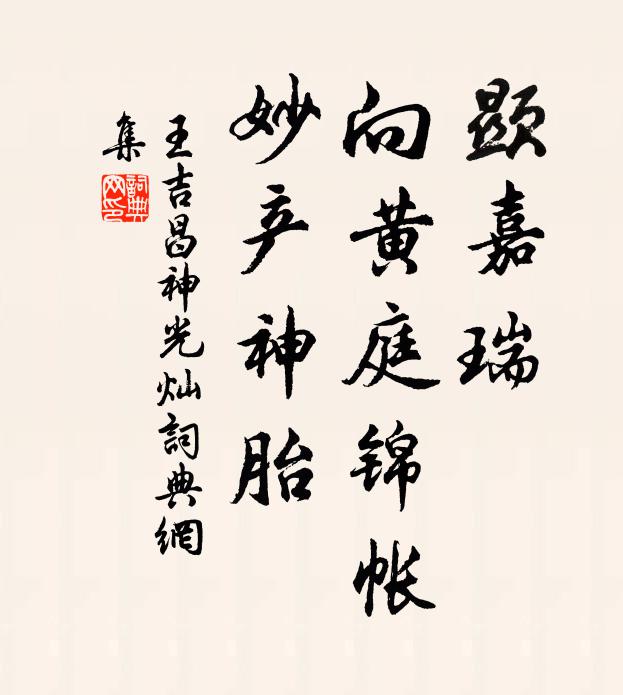 顕嘉瑞
向黄庭锦帐
妙产神胎
王吉昌神光灿詞典網
集
詞典
网印